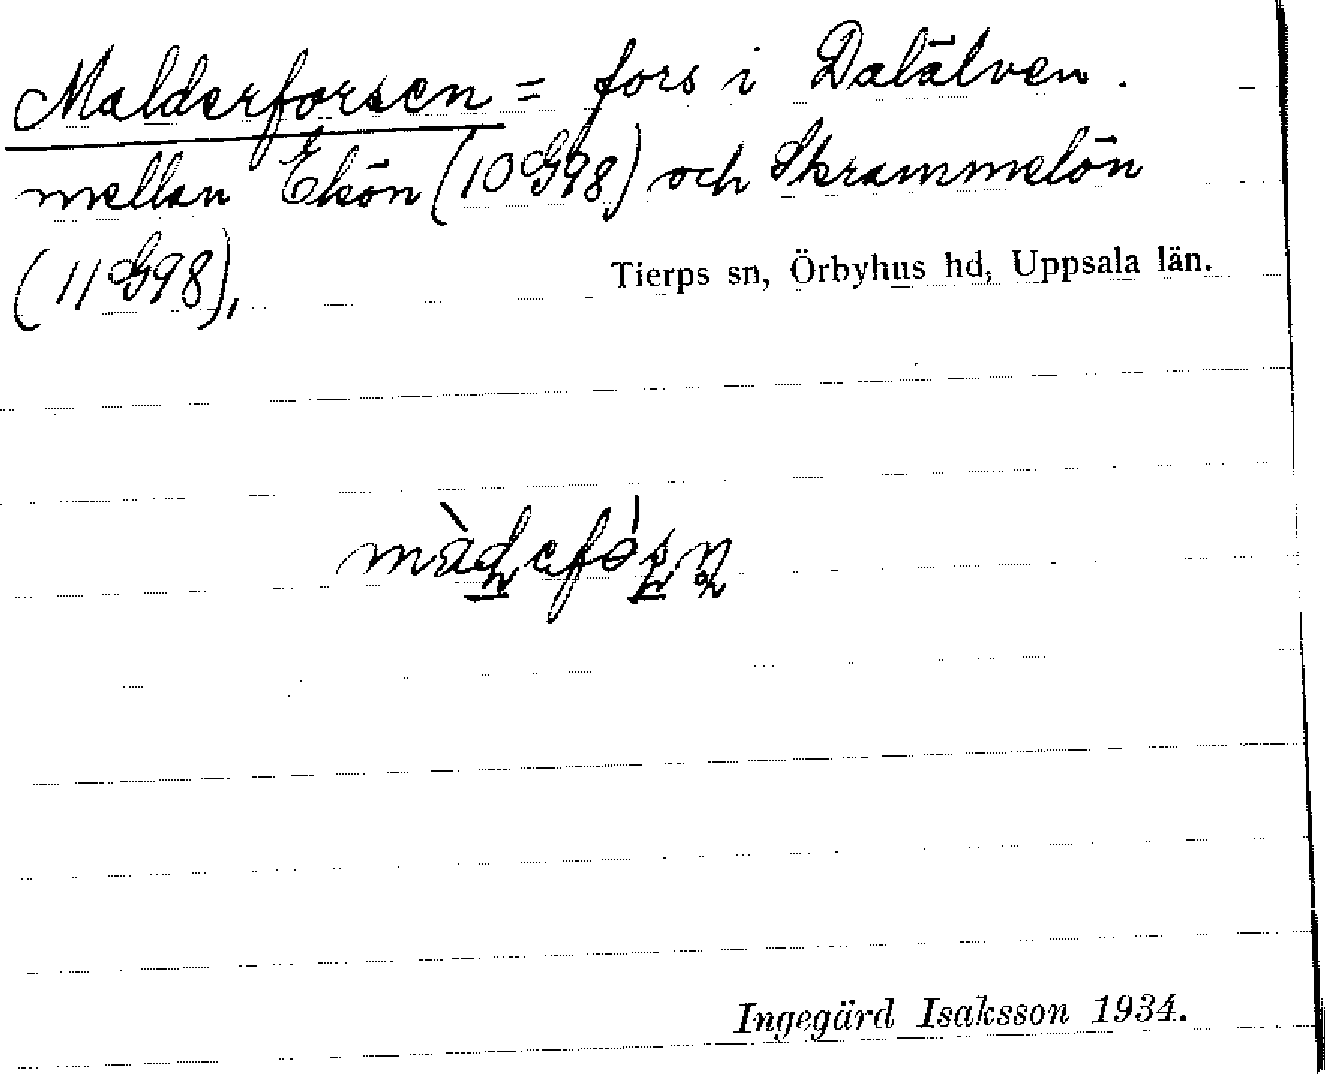 Malderforsen = fors i Dalälven.
mellan Ekön (10G98) och Skrammelön
(11G98),
Tierps sn, Örbyhus hd, Uppsala län.
Ingegärd Isaksson 1934.